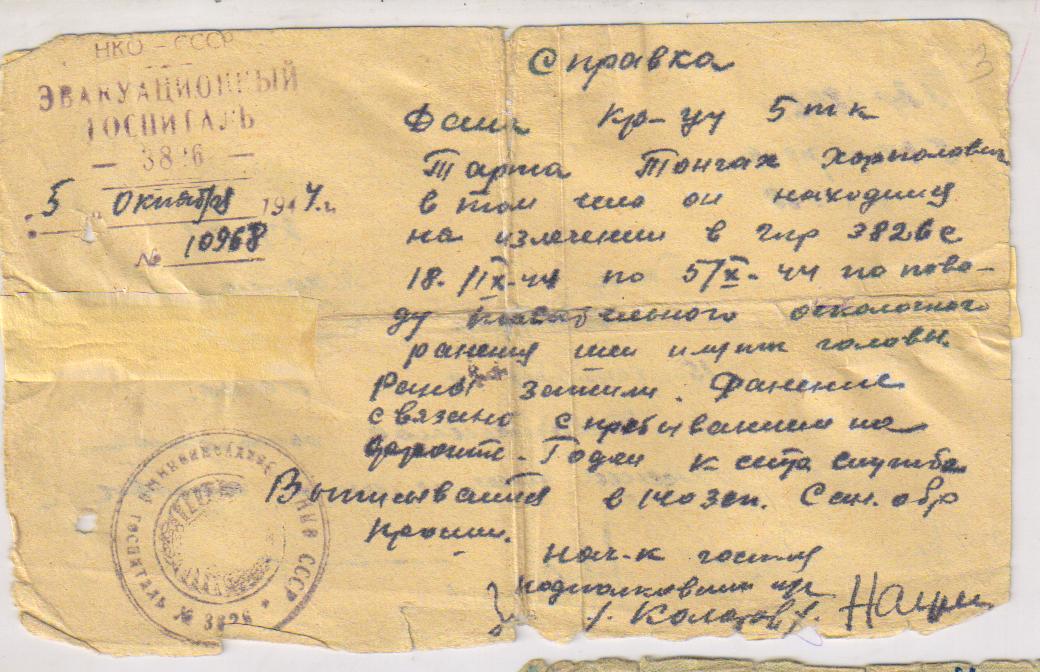 НКО - СССР
ЭВАКУАЦИОННЫЙ
ГОСПИТАЛЬ
— 3826 —
5 Октября 1944 г.
№ 10968
3
Справка
Дана кр-цу 5 тк
Тарта Тонгах
в том что он находился
на излечении в гпр 3826 с
18/IX-44 по 5/X-44 по пово-
ду осколочного
ранения шеи и головы.
Раны зажили. Ранение
связано с пребыванием на
фронте. Годен к службе
Выписывается в 140 зсп. Сан. обр
прошел.
Нач-к госпиталя
подполковник
ГОСПИТАЛЬ № 3826 * СССР